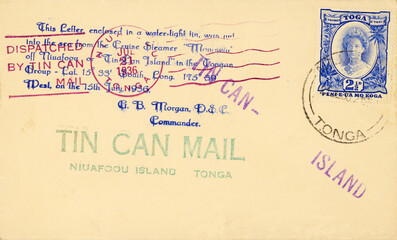 This Letter, enclosed in a water-tight tin, was put
into the sea from the Cruise Steamer
off Niuafoou or "Tin Can" Island in the Tongan
Group - Lat. 15° 33' South, Long. 175°
West, on the 15th 1936.
G. B. Morgan, D.S.C.
Commander.
DISPATCHED
BY TIN CAN
MAIL
JUL
21
1936
TIN CAN-
ISLAND
TOGA
2½D
PENI E UA MO KOGA
TONGA
TIN CAN MAIL
NIUAFOOU ISLAND TONGA